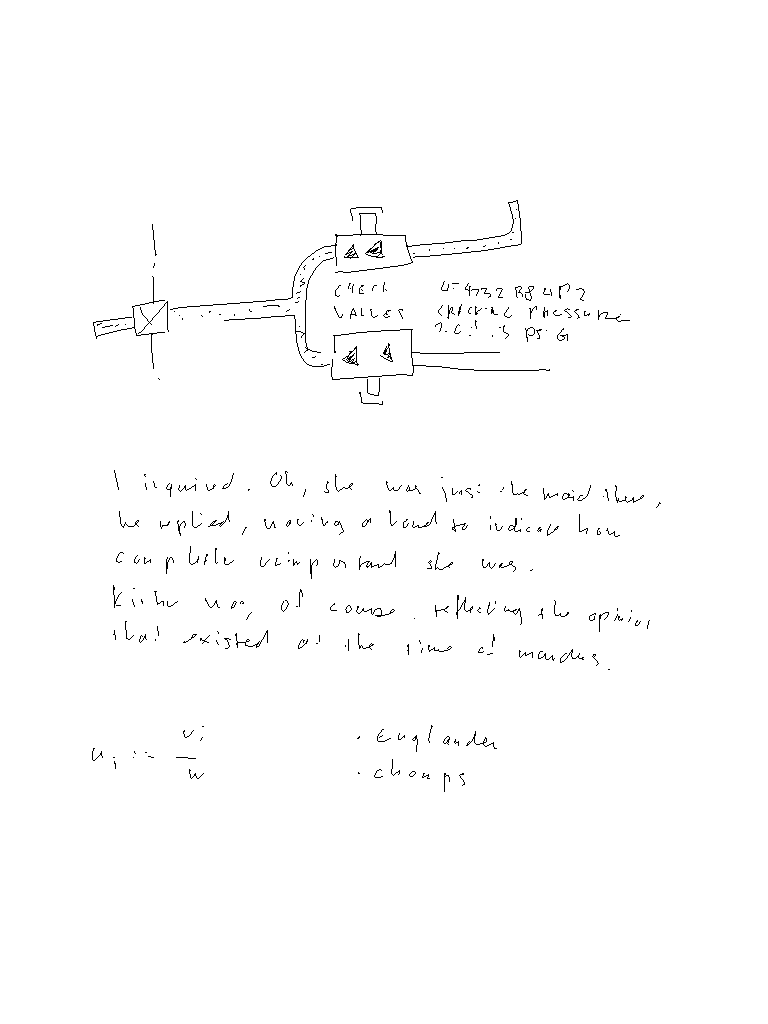 CHECK
VALVES
CRACKING PRESSURE
PSIG
I inquired. Oh, she was just the maid there,
he replied, waving a hand to indicate how
completely unimportant she was.
of course. reflecting the opinion
that existed at the time of
u_i := v_i / w
. Englander
. chomps